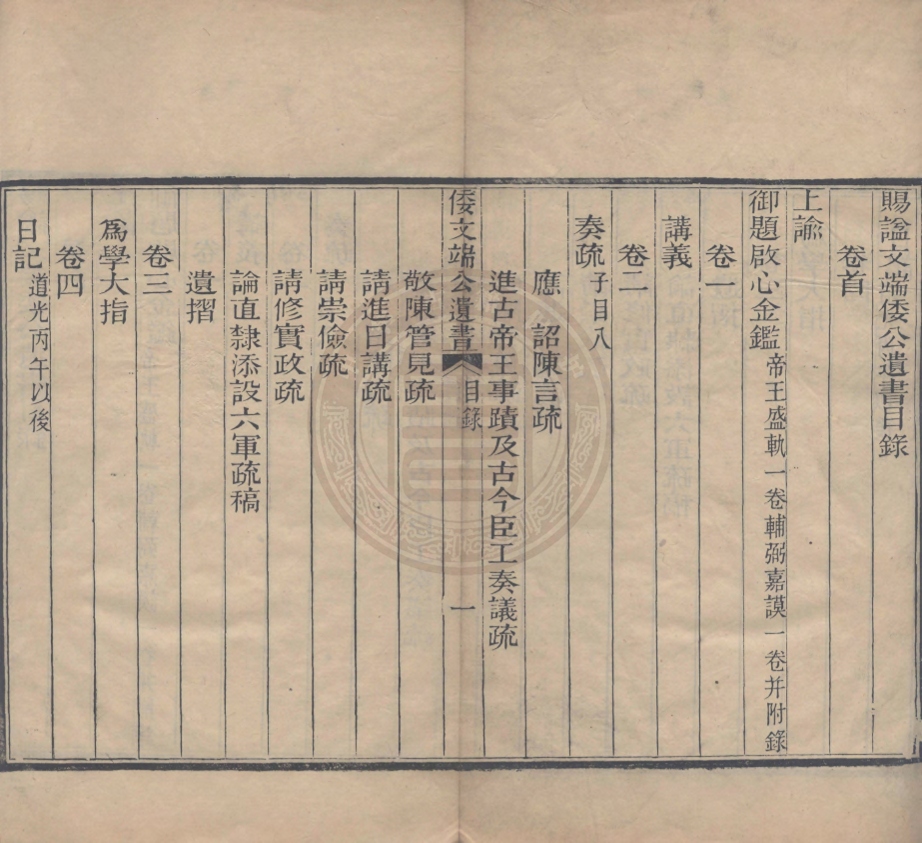 賜諡文端倭公遺書目錄
卷首
上諭
御題啟心金鑑帝王盛軌一卷輔弼嘉謨一卷并附錄
卷一
講義
卷二
奏疏子目八
應　詔陳言疏
進古帝王事蹟及古今臣工奏議疏
倭文端公遺書　目錄　一
敬陳管見疏
請進日講疏
請崇儉疏
請修實政疏
論直隸添設六軍疏稿
遺摺
卷三
為學大指
卷四
日記道光丙午以後